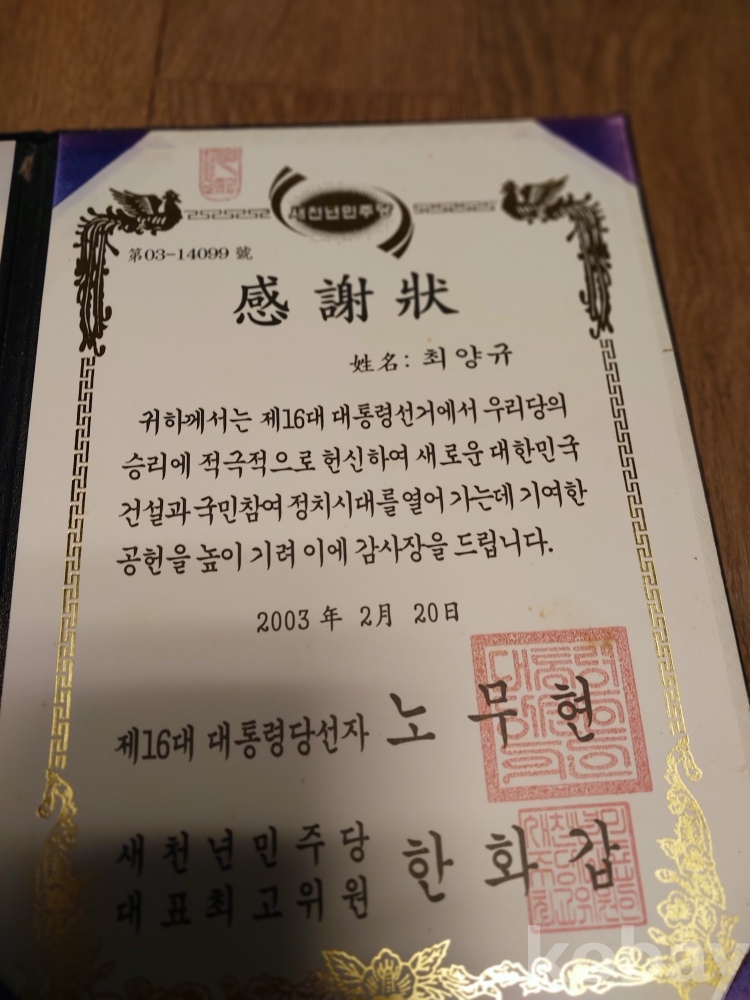 새천년민주당
第03-14099 號
感謝狀
姓名: 최양규
귀하께서는 제16대 대통령선거에서 우리당의
승리에 적극적으로 헌신하여 새로운 대한민국
건설과 국민참여 정치시대를 열어 가는데 기여한
공헌을 높이 기려 이에 감사장을 드립니다.
2003 年 2月 20日
제16대 대통령당선자 노무현
새천년민주당 한화갑
대표최고위원
kobay